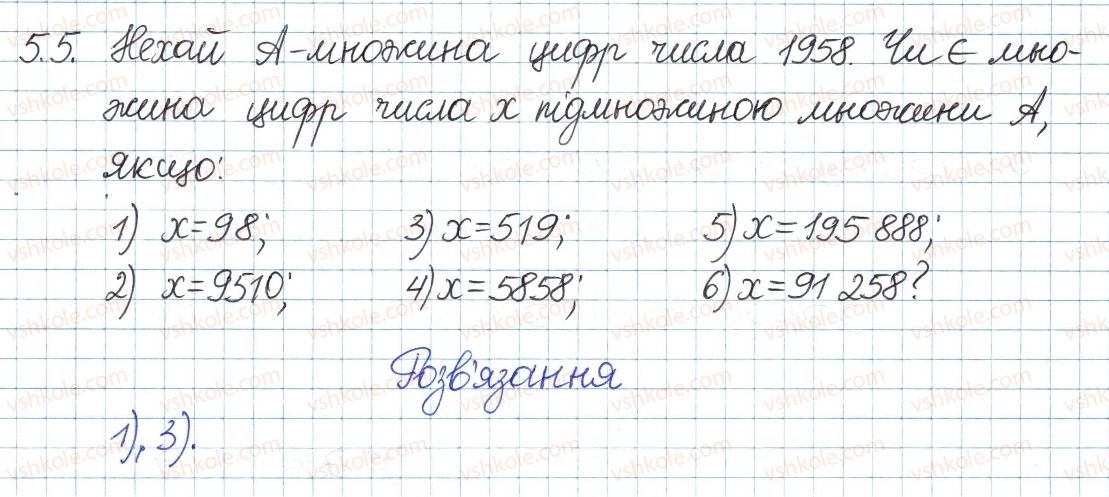 5.5. Нехай А-множина цифр числа 1958. Чи є мно-
жина цифр числа x підмножиною множини А,
якщо:
1) x=98; 3) x=519; 5) x=195 888;
2) x=9510; 4) x=5858; 6) x=91 258?
Розв'язання
1), 3).